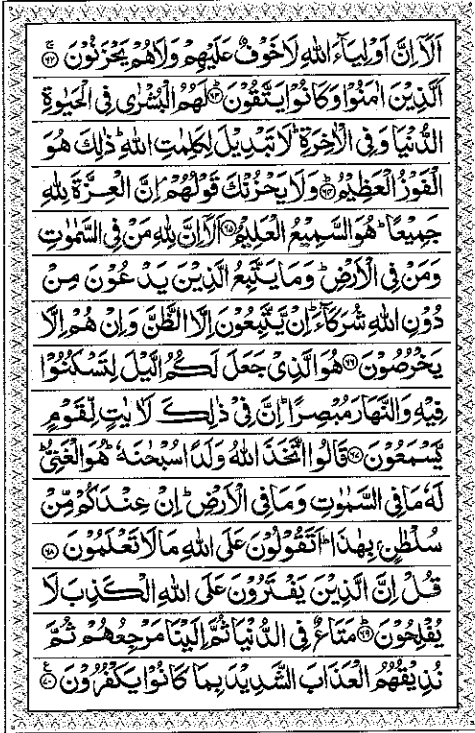 اَلَاۤ اِنَّ اَوْلِيَآءَ اللّٰهِ لَا خَوْفٌ عَلَيْهِمْ وَلَا هُمْ يَحْزَنُوْنَ ۝۶۲
الَّذِيْنَ اٰمَنُوْا وَكَانُوْا يَتَّقُوْنَ ۝۶۳ لَهُمُ الْبُشْرٰى فِى الْحَيٰوةِ
الدُّنْيَا وَفِى الْاٰخِرَةِ ؕ لَا تَبْدِيْلَ لِكَلِمٰتِ اللّٰهِ ؕ ذٰلِكَ هُوَ
الْفَوْزُ الْعَظِيْمُ ۝۶۴ وَلَا يَحْزُنْكَ قَوْلُهُمْ ۘ اِنَّ الْعِزَّةَ لِلّٰهِ
جَمِيْعًا ؕ هُوَ السَّمِيْعُ الْعَلِيْمُ ۝۶۵ اَلَاۤ اِنَّ لِلّٰهِ مَنْ فِى السَّمٰوٰتِ
وَمَنْ فِى الْاَرْضِ ؕ وَمَا يَتَّبِعُ الَّذِيْنَ يَدْعُوْنَ مِنْ
دُوْنِ اللّٰهِ شُرَكَآءَ ؕ اِنْ يَّتَّبِعُوْنَ اِلَّا الظَّنَّ وَاِنْ هُمْ اِلَّا
يَخْرُصُوْنَ ۝۶۶ هُوَ الَّذِىْ جَعَلَ لَكُمُ الَّيْلَ لِتَسْكُنُوْا
فِيْهِ وَالنَّهَارَ مُبْصِرًا ؕ اِنَّ فِىْ ذٰلِكَ لَاٰيٰتٍ لِّقَوْمٍ
يَّسْمَعُوْنَ ۝۶۷ قَالُوا اتَّخَذَ اللّٰهُ وَلَدًا سُبْحٰنَهٗ ؕ هُوَ الْغَنِىُّ ؕ
لَهٗ مَا فِى السَّمٰوٰتِ وَمَا فِى الْاَرْضِ ؕ اِنْ عِنْدَكُمْ مِّنْ
سُلْطٰنٍۭ بِهٰذَا ؕ اَتَقُوْلُوْنَ عَلَى اللّٰهِ مَا لَا تَعْلَمُوْنَ ۝۶۸
قُلْ اِنَّ الَّذِيْنَ يَفْتَرُوْنَ عَلَى اللّٰهِ الْكَذِبَ لَا
يُفْلِحُوْنَ ۝۶۹ مَتَاعٌ فِى الدُّنْيَا ثُمَّ اِلَيْنَا مَرْجِعُهُمْ ثُمَّ
نُذِيْقُهُمُ الْعَذَابَ الشَّدِيْدَ بِمَا كَانُوْا يَكْفُرُوْنَ ۝۷۰